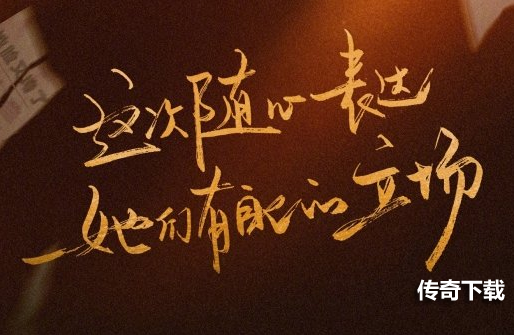 这次随心表达
她们有自己的立场
传奇下载